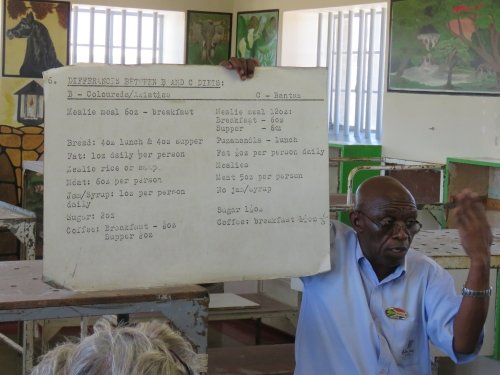 6. DIFFERENCES BETWEEN B AND C DIETS:
B - Coloureds/Asiatics
C - Bantus
Mealie meal 6oz - breakfast
Mealie meal 12oz:
Breakfast - 6oz
Supper - 6oz
Bread: 4oz lunch & 4oz supper
Puzamandla - lunch
Fat: 1oz daily per person
Fat ½oz per person daily
Mealie rice or samp
Mealies
Meat: 6oz per person
Meat 5oz per person
Jam/Syrup: 1oz per person
daily
No jam/syrup
Sugar: 2oz
Sugar 1½oz
Coffee: Breakfast -
Supper
Coffee: breakfast